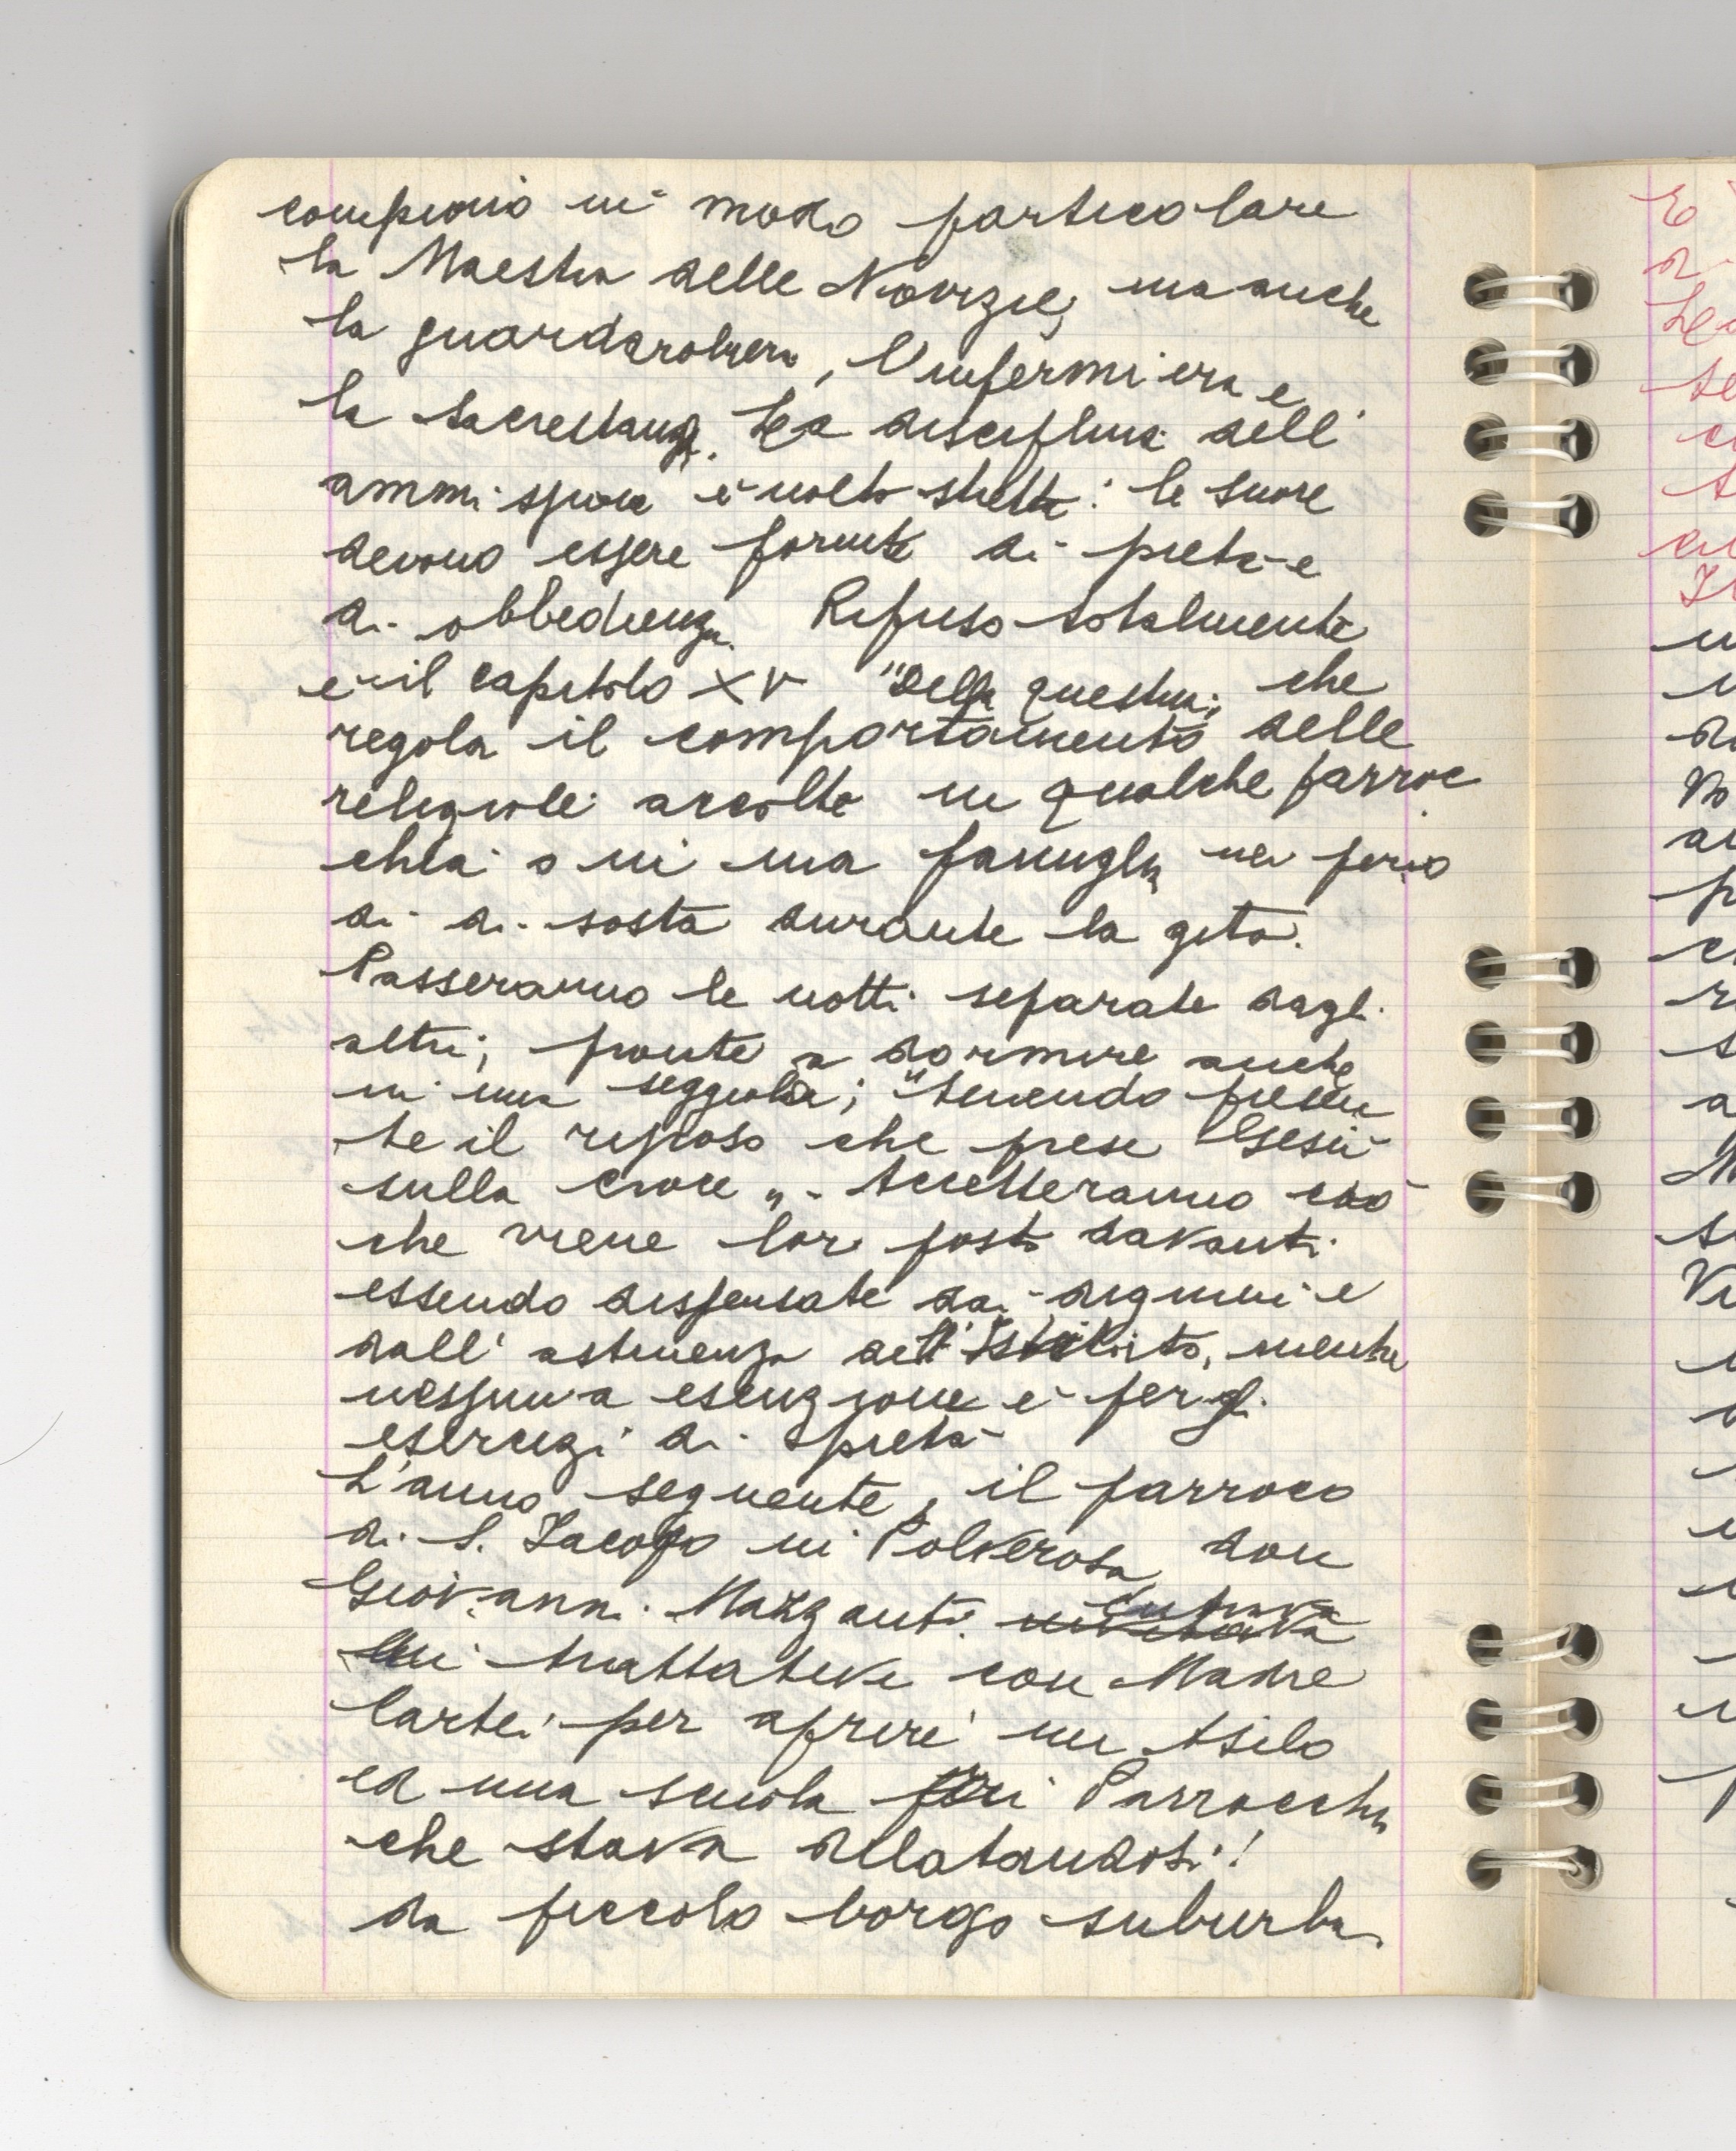 compiono in modo particolare
la Maestra delle Novizie, ma anche
la guardarobiera, l'infermiera e
la sacrestana. La disciplina dell'
ammissione è molto stretta: le suore
devono essere fornite di pietà e
di obbedienza. Rifuso totalmente
è il capitolo XV "Della questua", che
regola il comportamento delle
religiose accolte in qualche parroc
chia o in una famiglia nei perio
di di sosta durante la gita.
Passeranno le notti separate dagli
altri, pronte a dormire anche
in una seggiola; "tenendo presen
te il riposo che prese Gesù
sulla Croce". Accetteranno ciò
che viene loro posto davanti
essendo dispensate dai digiuni e
dall'astinenza dell'Istituto, mentre
nessuna esenzione è per gli
esercizi di pietà
L'anno seguente, il parroco
di S. Jacopo in Polverosa, don
Giovanni Mazzanti entrava
in trattative con Madre
Lartei per aprire un Asilo
ed una scuola in Parrocchia
che stava dilatandosi
da piccolo borgo suburba